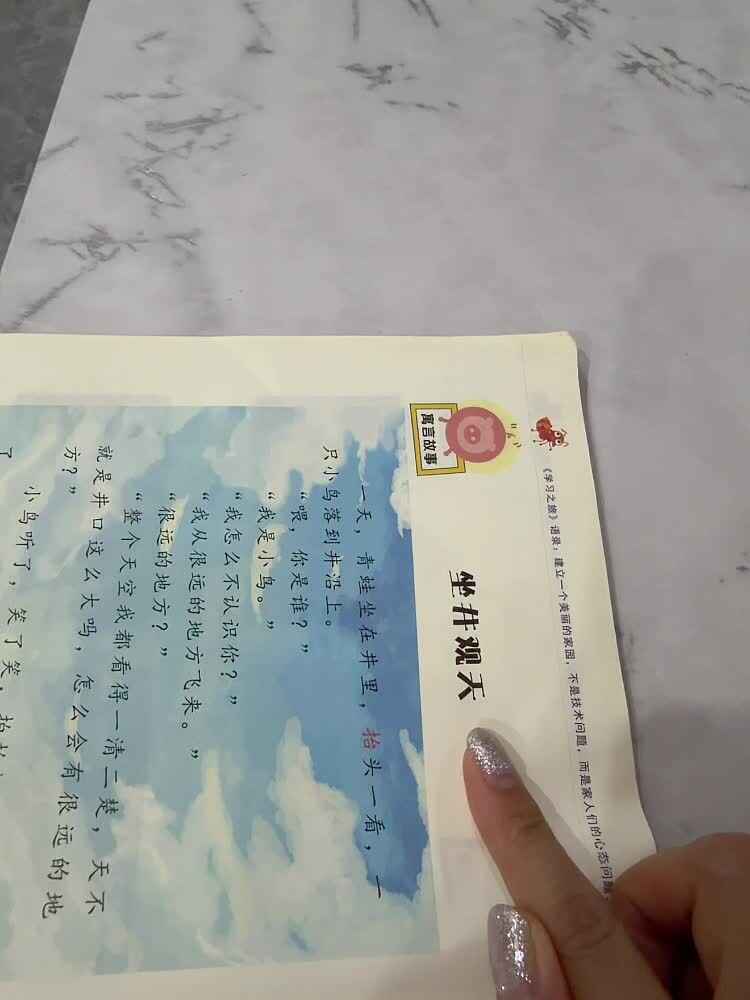 《学习之旅》语录：建立一个美丽的家园，不是技术问题，而是家人们的心态问题
寓言故事
坐井观天
一天，青蛙坐在井里，抬头一看，一
只小鸟落到井沿上。
“喂，你是谁？”
“我是小鸟。”
“我怎么不认识你？”
“我从很远的地方飞来。”
“很远的地方？”
“整个天空我都看得一清二楚，天不
就是井口这么大吗，怎么会有很远的地
方？”
小鸟听了，笑了笑，抬
了